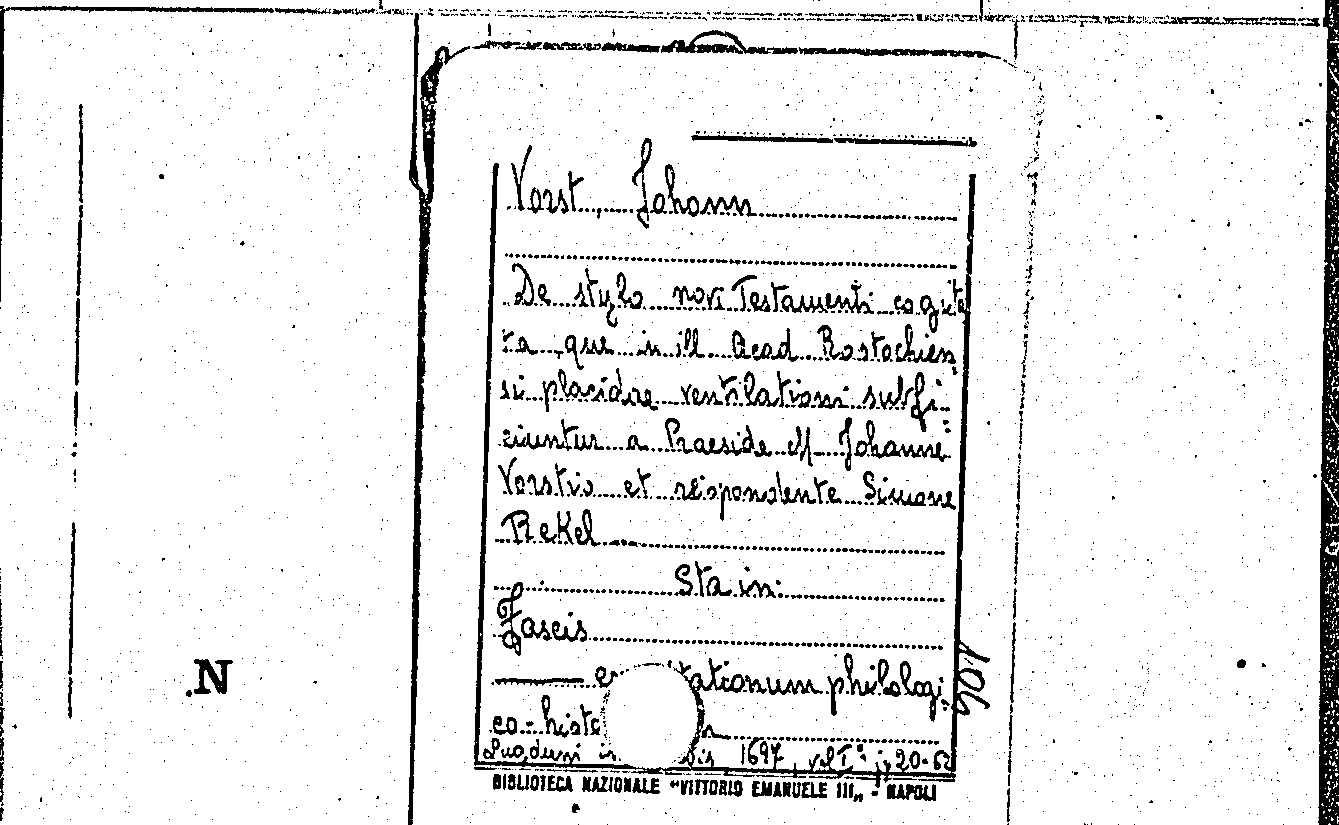 Vorst, Johann
De stylo novi Testamenti cogita
ta que in ill Acad Rostochien
si placidae ventilationi subfi-
ciuntur a Praeside M Johanne
Vorstio et respondente Simone
Rekel
Sta in:
Fascis
philologi-
co-
1697, vol I° 20-62
BIBLIOTECA NAZIONALE "VITTORIO EMANUELE III„ - NAPOLI
.N